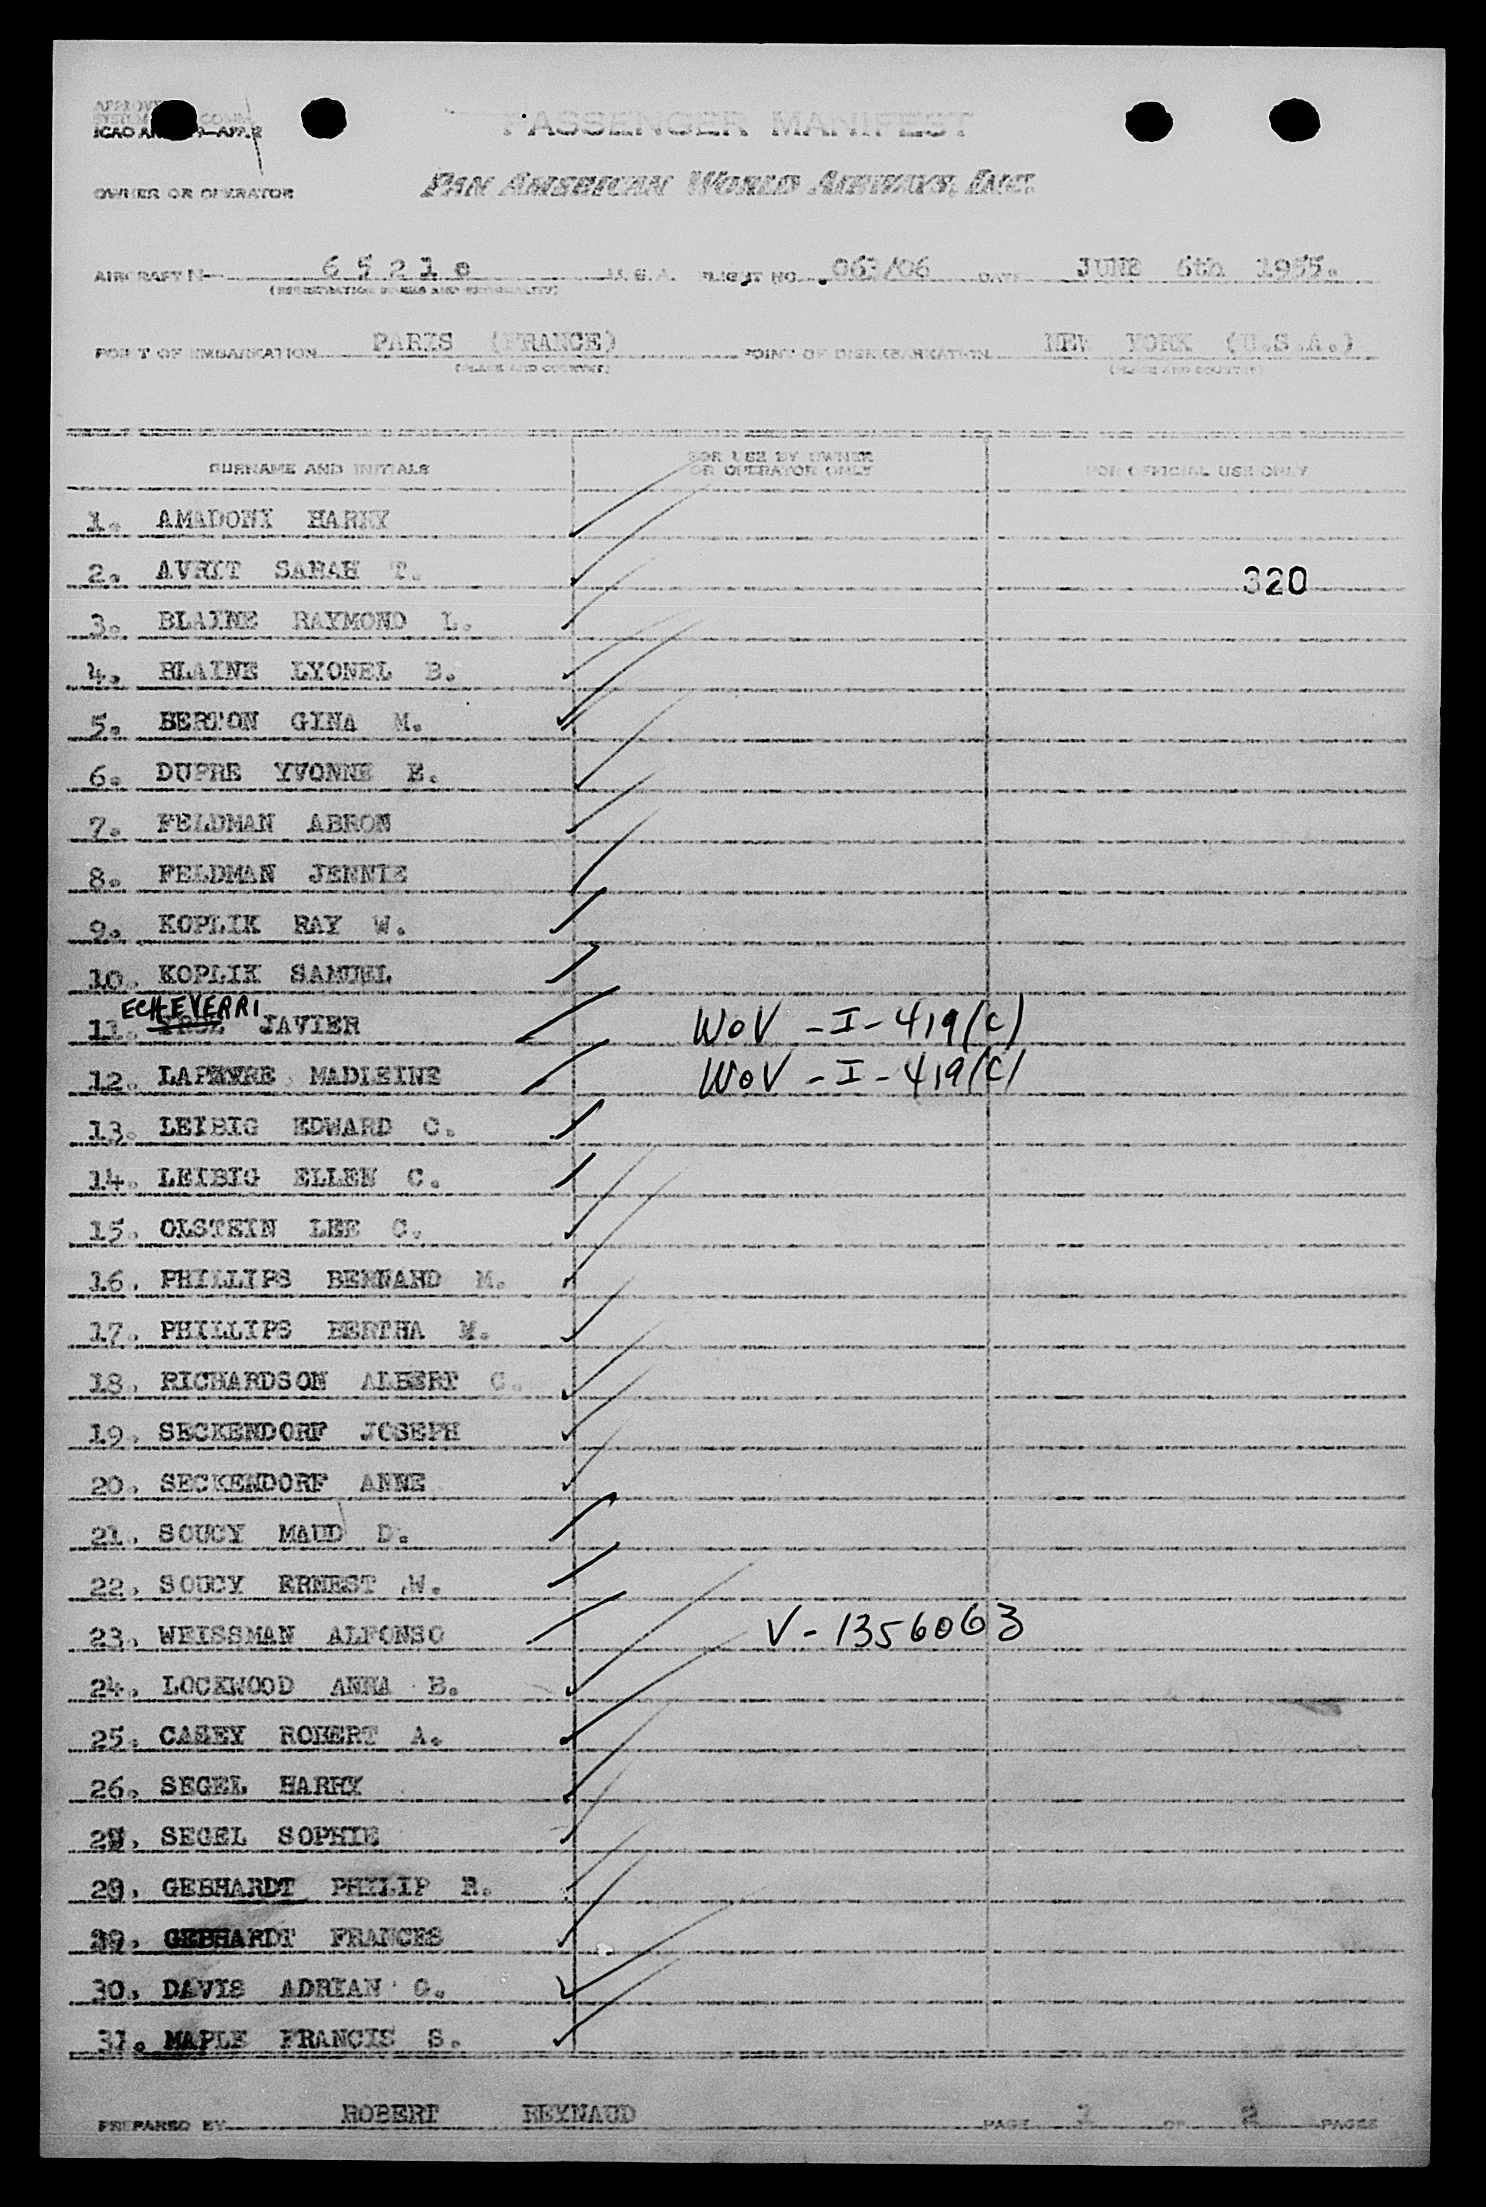 APPROVE
ICAO AN
PASSENGER MANIFEST
OWNER OR OPERATOR PAN AMERICAN WORLD AIRWAYS, INC.
AIRCRAFT N- 6 5 2 1 U.S.A. FLIGHT NO. 063/06 DATE JUNE 6th 1955.
(REGISTRATION MARKS AND NATIONALITY)
POINT OF EMBARKATION PARIS (FRANCE) POINT OF DISEMBARKATION NEW YORK (U.S.A.)
(PLACE AND COUNTRY) (PLACE AND COUNTRY)
SURNAME AND INITIALS FOR USE BY OWNER OR OPERATOR ONLY FOR OFFICIAL USE ONLY
1. AMADONI HARRY
2. AVRIT SARAH T. 320
3. BLAINE RAYMOND L.
4. BLAINE LYONEL B.
5. BERTON GINA M.
6. DUPRE YVONNE E.
7. FELDMAN ABRON
8. FELDMAN JENNIE
9. KOPLIK RAY W.
10. KOPLIK SAMUEL
ECHEVERRI
11. JAVIER WOV - I - 419(C)
12. MADLEINE WOV - I - 419(C)
13. LEIBIG EDWARD C.
14. LEIBIG ELLEN C.
15. OLSTEIN LEE C.
16. PHILLIPS BERNARD M.
17. PHILLIPS BERTHA M.
18. RICHARDSON ALBERT C.
19. SECKENDORF JOSEPH
20. SECKENDORF ANNE
21. SOUCY MAUD D.
22. SOUCY ERNEST W.
23. WEISSMAN ALFONSO V-1356063
24. LOCKWOOD ANNA B.
25. CASEY ROBERT A.
26. SEGEL HARRY
27. SEGEL SOPHIE
28. GEBHARDT PHILIP R.
29. GEBHARDT FRANCES
30. DAVIS ADRIAN G.
31. MAPLE FRANCIS S.
PREPARED BY ROBERT REYNAUD PAGE 1 OF 2 PAGES